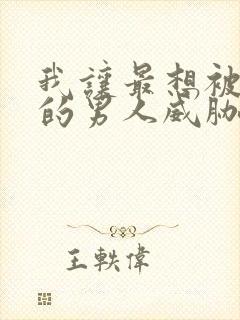 我讓最想被
的男人威脅
王軼偉